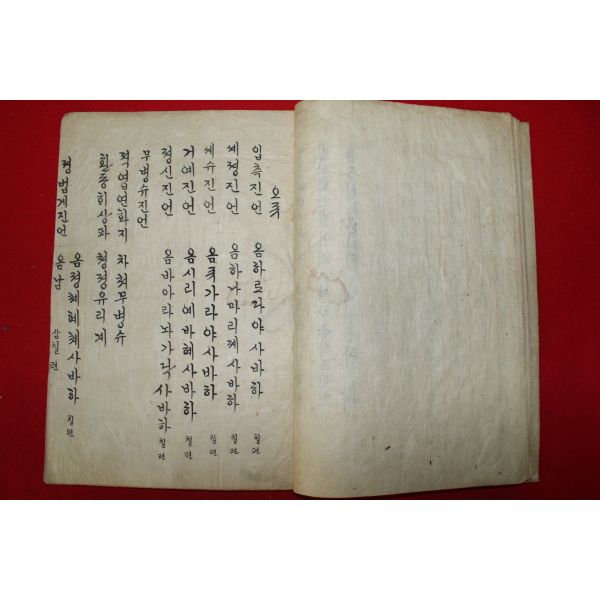 오쥬
입측진언 옴하로다야사바하 칠편
세졍진언 옴하나마리제사바하 칠편
세슈진언 옴쥬가라야사바하 칠편
거예진언 옴시리예바혜사바하 칠편
졍신진언 옴바아라놔가닥사바하 칠편
무병슈진언
적엽연화지 차쳐무병슈
회중회상좌 쳥졍유리계
옴졍체혜체사바하 칠편
졍법계진언 옴남 삼칠편